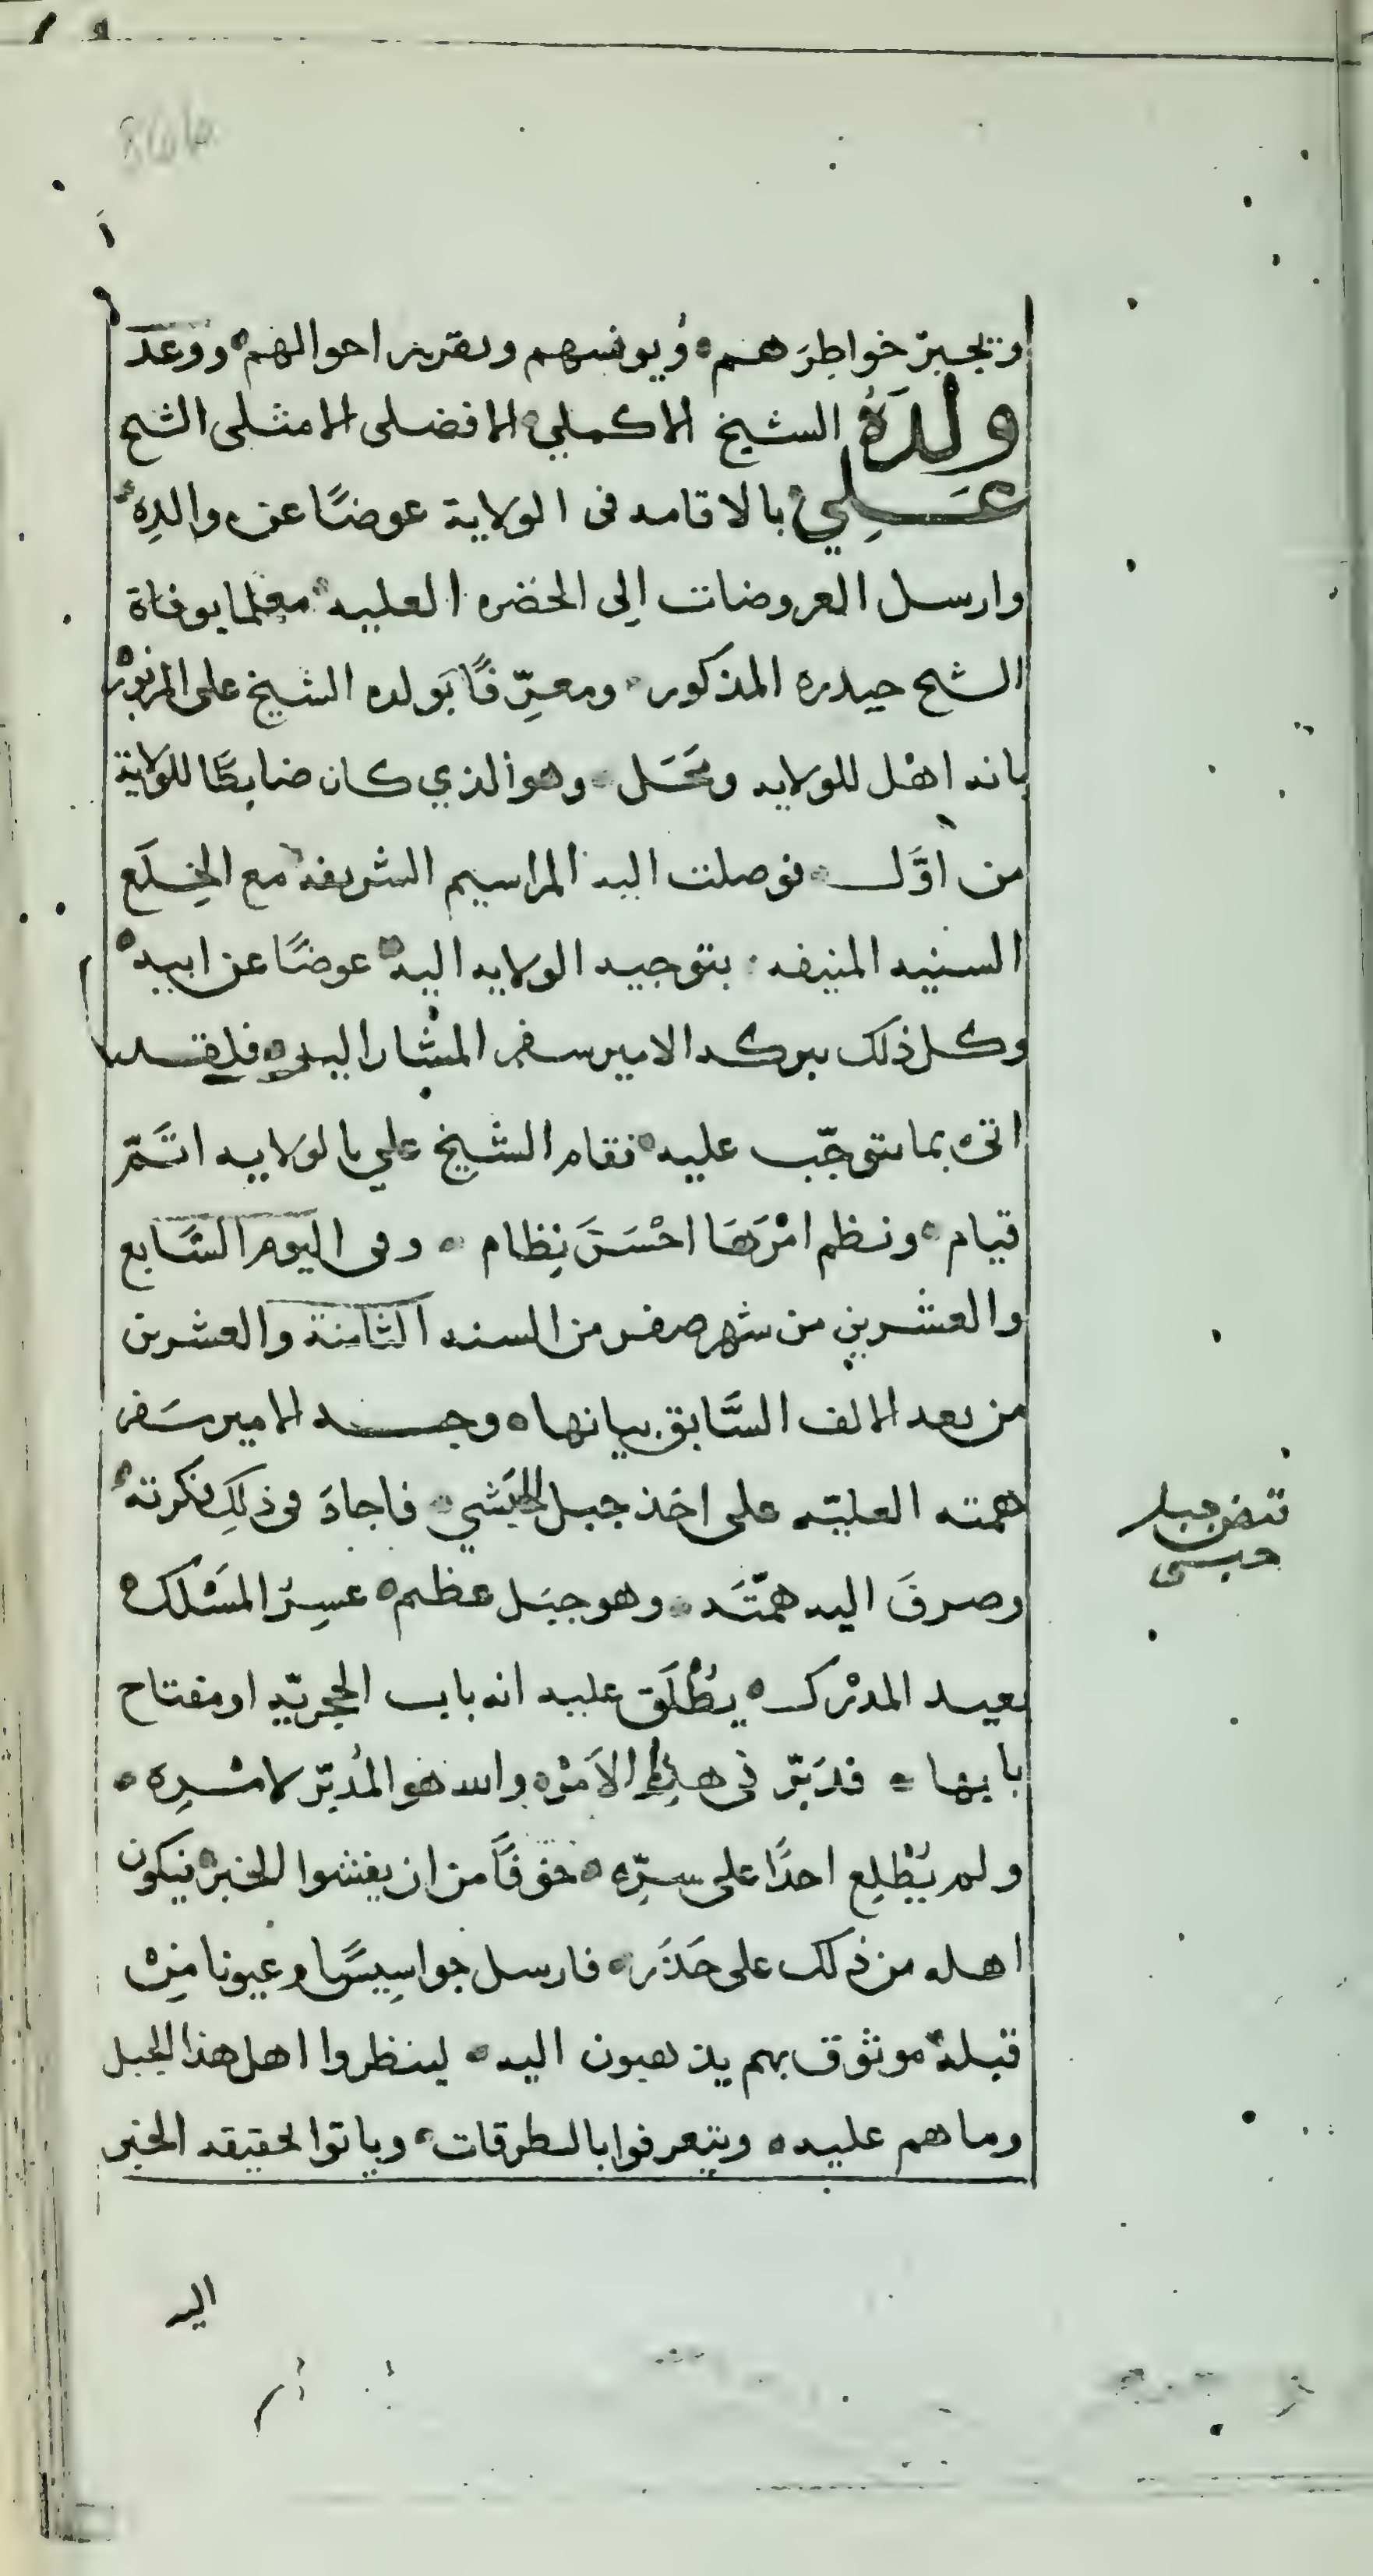 ويجبر خواطرهم ويونسهم ويقرر احوالهم ووعد
ولده الشيخ الاكملي الافضلي الامثلي الشيخ
علي بالاقامه في الولاية عوضًا عن والدِه
وارسل العروضات الى الحضره العليه معلما بوفاة
الشيخ حيدره المذكور ومعرِّفًا بولده الشيخ على المزبور
بانه اهل للولايه ومحَل وهو الذي كان ضابطًا للولاية
من اوَّل فوصلت اليه المراسيم الشريفه مع الخِلَع
السنيه المنيفه بتوجيه الولايه اليه عوضًا عن ابيه
وكل ذلك ببركه الامير سفر المشار اليه فلقد
اتى بما يتوجّب عليه فقام الشيخ علي بالولايه اتَمّ
قيام ونظم امْرَهَا احْسَنَ نِظام وفى اليوم السَّابع
والعشرين من شهر صفر من السنه الثامنة والعشرين
من بعد الالف السَّابق بيانها وجه الامير سَفر
همته العليّه على اخذ جبل الحَبَشي فاجادَ فى ذلِكَ فكرته
وصرفَ اليه همّتَه وهو جبَل عظيم عسِرُ المَسْلك
بعيد المدْرك يُطْلَق عليه انه باب الحجريّه او مفتاح
بابها فدَبّر في هذا الاَمْر والله هو المُدَبّر لامْرِه
ولم يُطْلِع احدًا على سرّه خوفًا من ان يفشوا الخبر فيكون
اهله من ذلك على حَذَر فارسل جواسِيسًا وعيونا مِنْ
قبله موثوق بهم يذهبون اليه لينظروا اهل هذا الجبل
وما هم عليه ويتعرفوا بالطرقات وياتوا بحقيقه الخبر
اليه
جبل
حبسى